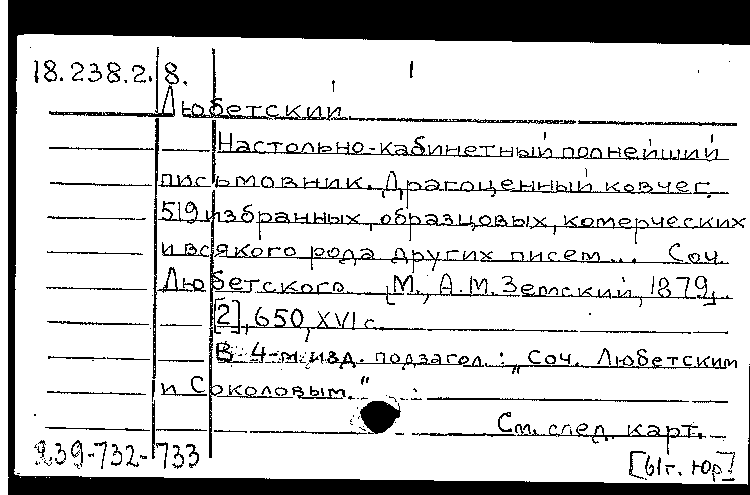 18.238.2.8.
Любетский.
Настольно-кабинетный полнейший
письмовник. Драгоценный ковчег
519 избранных, образцовых, комерческих
и всякого рода других писем... Соч.
Любетского. [М., А.М. Земский, 1879].
[2], 650, XVI с.
В 4-м изд. подзагол.: „Соч. Любетским
и Соколовым."
См. след. карт.
239-732-733
[61г. юр]